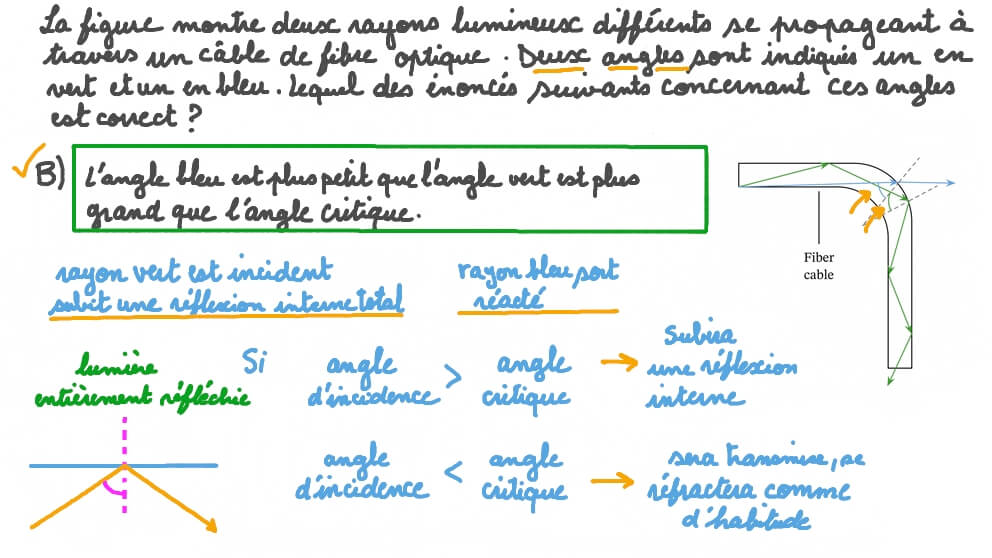 La figure montre deux rayons lumineux différents se propageant à
travers un câble de fibre optique. Deux angles sont indiqués un en
vert et un en bleu. Lequel des énoncés suivants concernant ces angles
est correct ?
B) L'angle bleu est plus petit que l'angle vert est plus
grand que l'angle critique.
Fiber
cable
rayon vert est incident
subit une réflexion interne total
rayon bleu sort
réacté
lumière
entièrement réfléchie
Si angle
d'incidence > angle
critique → Subira
une réflexion
interne
angle
d'incidence < angle
critique → sera transmise, se
réfractera comme
d'habitude